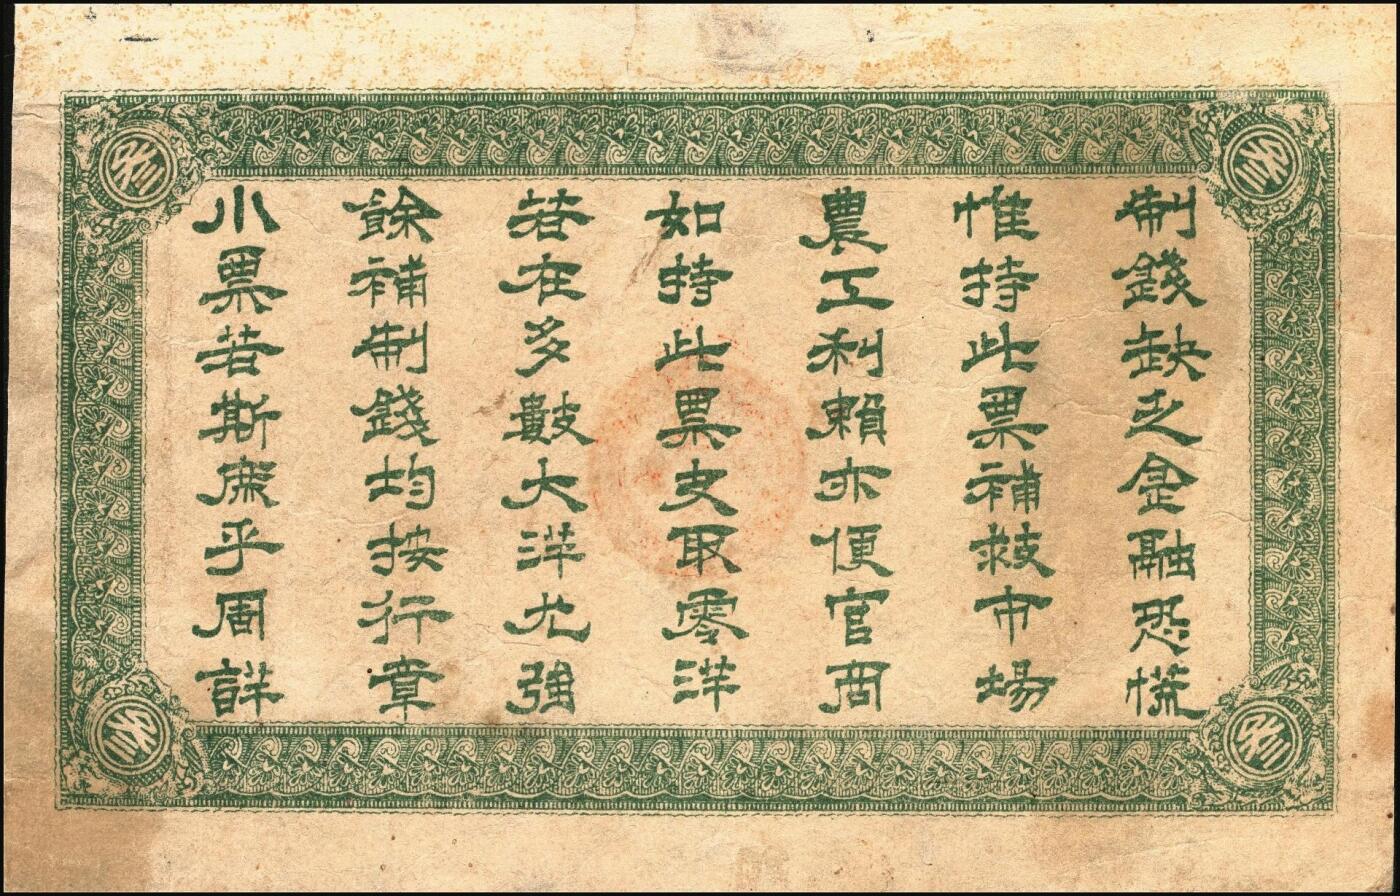 制錢缺乏金融恐慌
惟持此票補救市場
農工利賴亦便官商
如持此票支取零洋
若在多數大洋尤強
餘補制錢均按行章
小票若斯庶乎周詳